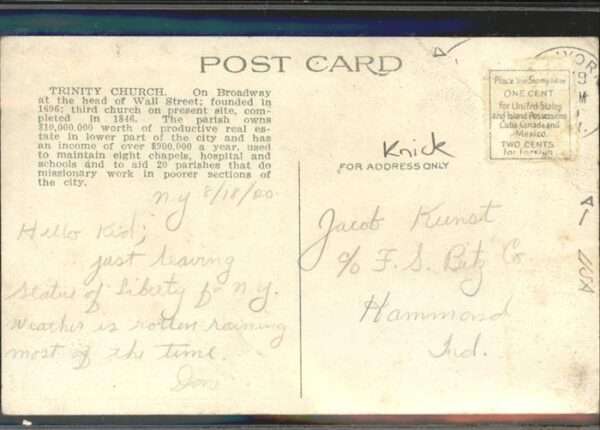 POST CARD
TRINITY CHURCH. On Broadway
at the head of Wall Street; founded in
1696; third church on present site, com-
pleted in 1846. The parish owns
$10,000,000 worth of productive real es-
tate in lower part of the city and has
an income of over $900,000 a year, used
to maintain eight chapels, hospital and
schools and to aid 20 parishes that do
missionary work in poorer sections of
the city.
N.Y. 8/18/20
Hello Kid;
just leaving
Statue of Liberty for N.Y.
Weather is rotten raining
most of the time.
Place the Stamp Here
ONE CENT
for United States
and Island Possessions
Cuba Canada and
Mexico
TWO CENTS
for Foreign
Knick
FOR ADDRESS ONLY
Jacob Kunst
c/o F. S. Betz Co.
Hammond
Ind.
USA